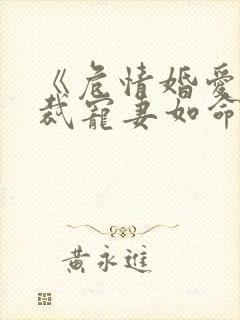 《危情婚爱
裁宠妻如命
黄永進